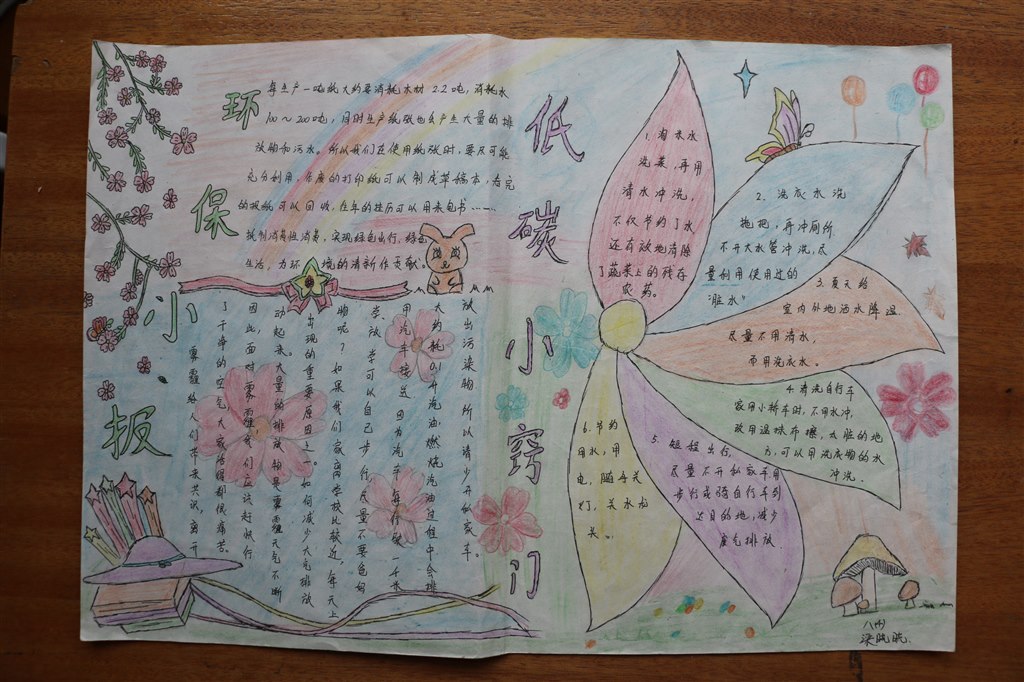 环
保
小
报
每生产一吨纸大约要消耗木材2.2吨，消耗水
100～200吨，同时生产纸张也会产生大量的排
放物和污水。所以我们在使用纸张时，要尽可能
充分利用，作废的打印纸可以制成草稿本，看完
的报纸可以回收，往年的挂历可以用来包书……
抵制消费性消费，实现绿色出行，绿色
生活，为环境的清新作贡献。
雾霾给人们带来共识，离开
了干净的空气，大家恰得都很痛苦。
因此，面对雾霾我们应该赶快行
动起来。大量的排放物是雾霾天气不断
出现的重要原因之一。如何减少大气排放
物呢？如果我们家离学校比较近，每天上
学放学可以自己步行，尽量不要爸妈
用汽车接送，因为汽车每行驶一千米
大约耗0.1升汽油，燃烧汽油过程中会排
放出污染物，所以请少开私家车。
低
碳
小
窍
门
1.淘米水
洗菜，再用
清水冲洗，
不仅节约了水
还有效地清除
了蔬菜上的残存
农药。
2.洗衣水洗
拖把，再冲厕所
不开大水管冲洗，尽
量利用使用过的
“脏水”
3.夏天给
室内外地洒水降温，
尽量不用清水，
而用洗衣水。
4.清洗自行车
家用小轿车时，不用水冲，
改用湿抹布擦，太脏的地
方，可以用洗衣物的水
冲洗。
5.短程出行，
尽量不开私家车用
步行或骑自行车到
达目的地，减少
废气排放
6.节约
用水，用
电，随手关
灯，关水龙
头。
八(4)
梁晓晓